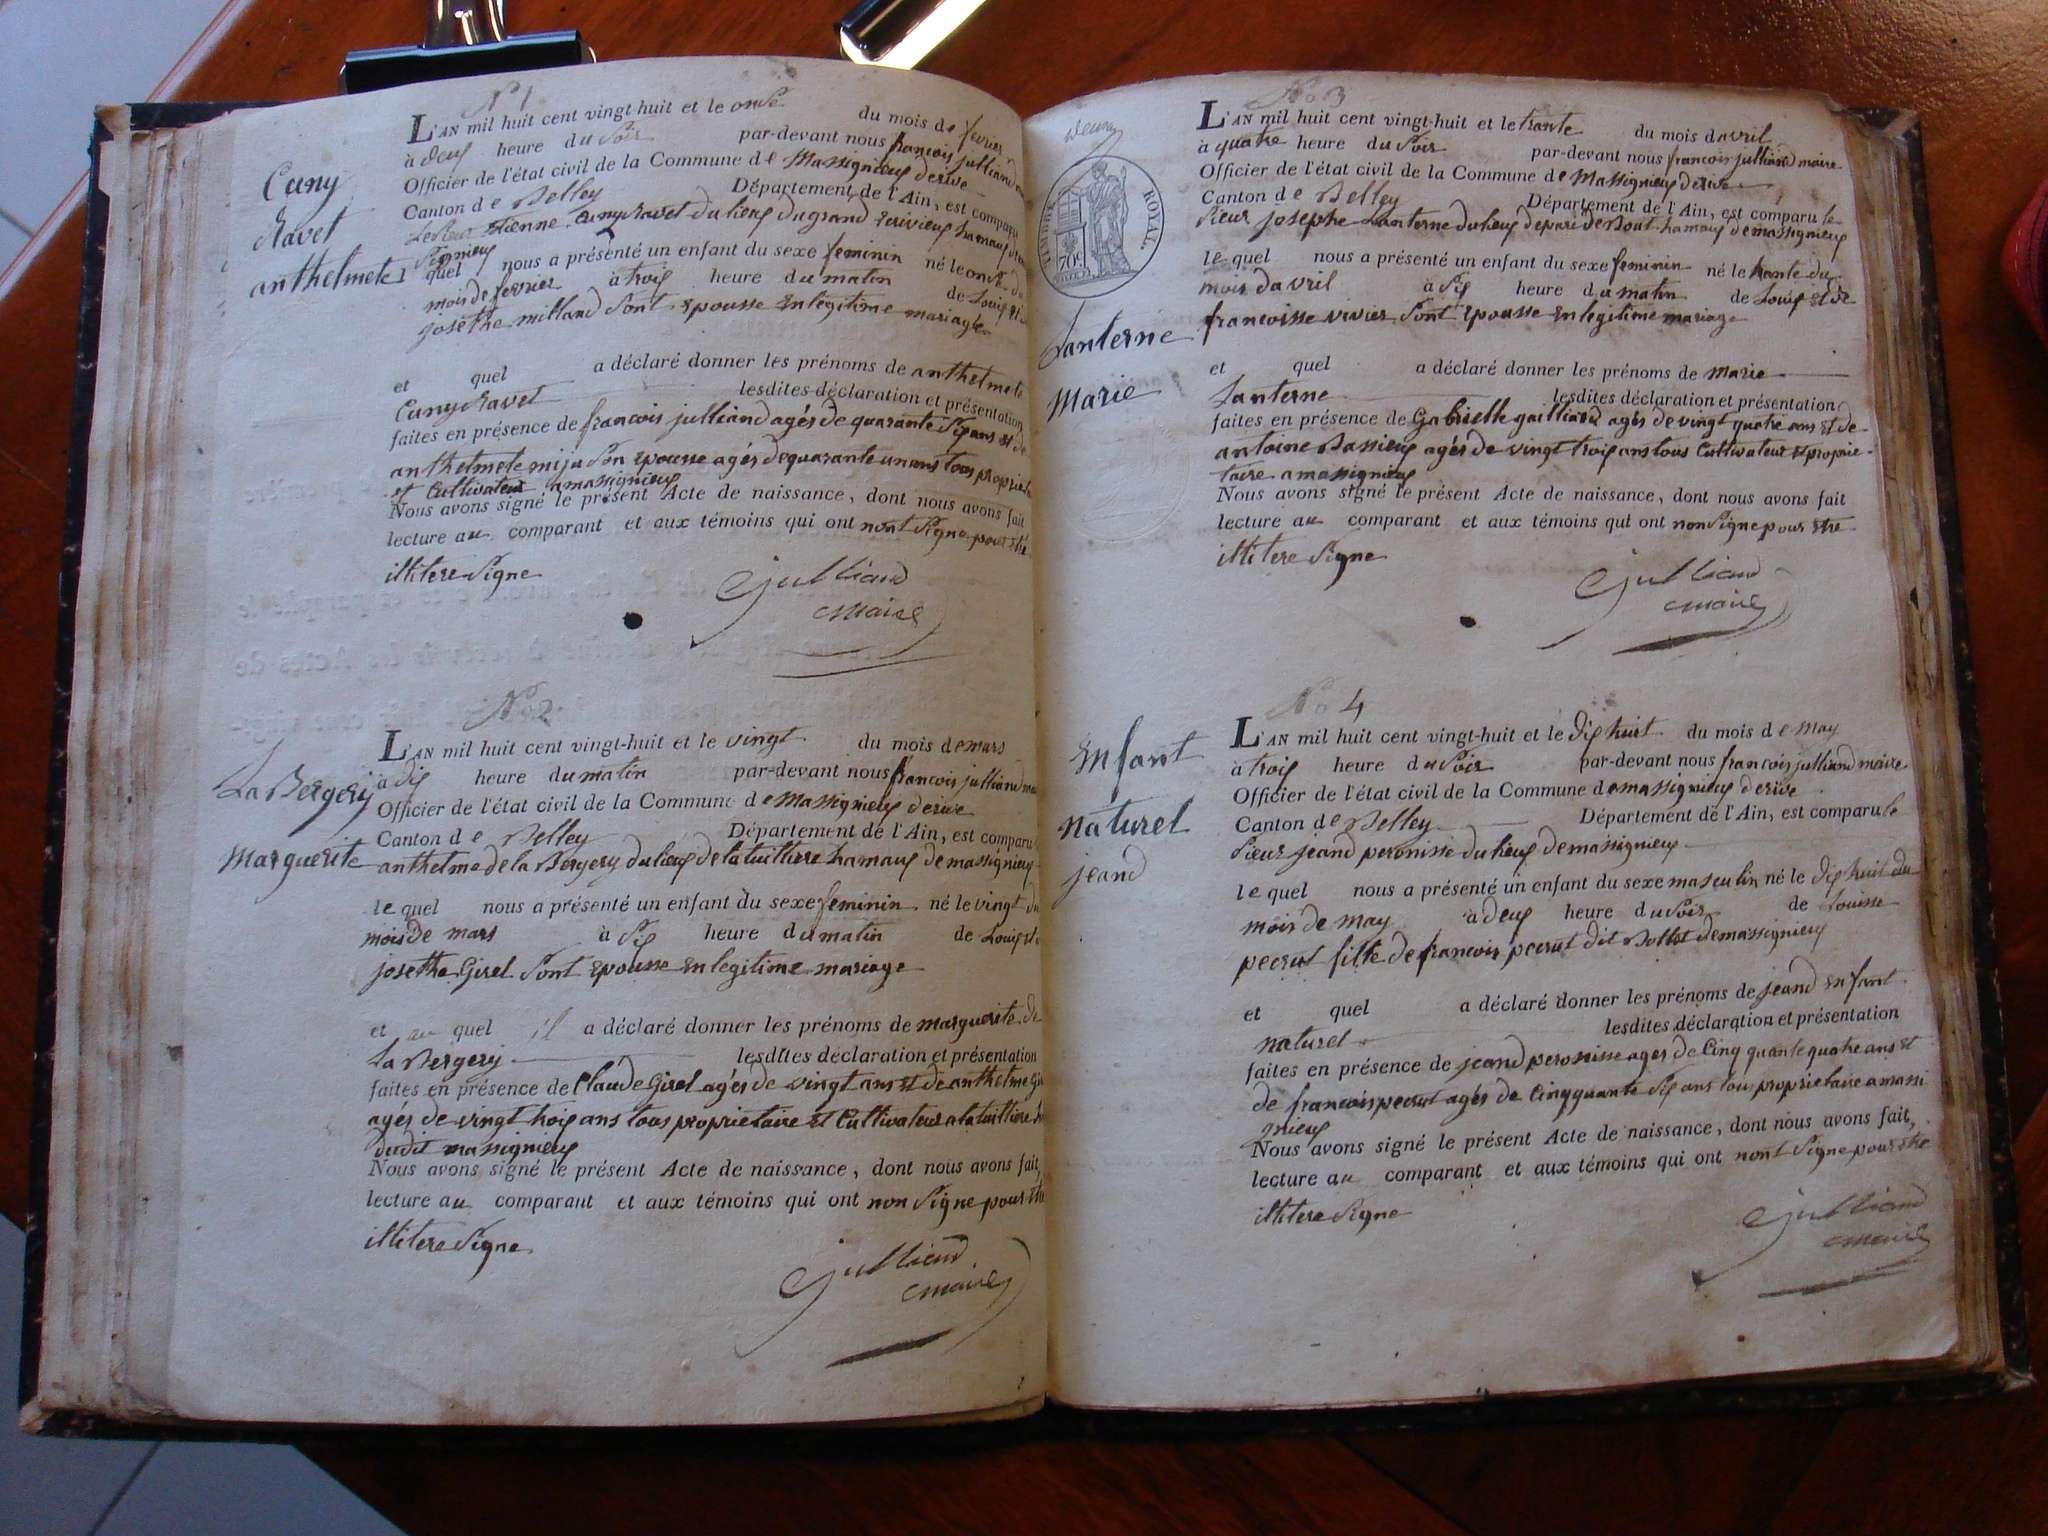 N° 1
L'AN mil huit cent vingt-huit et le onse du mois de fevrier
à deux heure du Soir par-devant nous francois julliand
Officier de l'état civil de la Commune de Massignieux derive
Canton de Belley Département de l'Ain, est comparu
Le sieur Etienne Cuny Ravet du lieux du grand Ecrivieux hamaux de mas
signieux
quel nous a présenté un enfant du sexe feminin né le onse du
mois de fevrier à trois heure du matin de Louis et
josethe milland Sont Epousse En legitime mariage
et quel a déclaré donner les prénoms de anthelmete
Cuny Ravet lesdites déclaration et présentation
faites en présence de francois julliand agés de quarante Six ans et de
anthelmete miju Son Epousse agés de quarante un ans tous proprieta
et Cultivateur a massignieux
Nous avons signé le présent Acte de naissance, dont nous avons fait
lecture au comparant et aux témoins qui ont nont Signe pour etre
illitere Signe
Julliand
maire
Cuny
Ravet
anthelmete
N° 2
L'AN mil huit cent vingt-huit et le vingt du mois de mars
à dix heure du matin par-devant nous francois julliand mai
Officier de l'état civil de la Commune de Massignieux derive
Canton de Belley Département de l'Ain, est comparu
anthelme de la Bergery du lieux de la tuilliere hamaux de massignieux
le quel nous a présenté un enfant du sexe feminin né le vingt du
mois de mars à Six heure du matin de Louis et
josethe Girel Sont Epousse En legitime mariage
et au quel il a déclaré donner les prénoms de marguerite de
La Bergery lesdites déclaration et présentation
faites en présence de Claude Girel agés de vingt ans et de anthelme Gi
agés de vingt trois ans tous proprietaire et Cultivateur a la tuilliere
dudit massignieux
Nous avons signé le présent Acte de naissance, dont nous avons fait,
lecture au comparant et aux témoins qui ont non Signe pour etre
illitere Signe
Julliand
maire
La Bergery
Marguerite
N° 3
L'AN mil huit cent vingt-huit et le trante du mois davril
à quatre heure du Soir par-devant nous francois julliand maire
Officier de l'état civil de la Commune de Massignieux derive
Canton de Belley Département de l'Ain, est comparu le
Sieur josephe Lanterne du lieux de pari de Bout hamaux de massignieux
le quel nous a présenté un enfant du sexe feminin né le trante du
mois davril à Six heure du matin de Louis et de
francoisse vivier Sont Epousse En legitime mariage
et quel a déclaré donner les prénoms de Marie
Lanterne lesdites déclaration et présentation
faites en présence de Gabrielle gailliard agés de vingt quatre ans et de
antoine Bassieux agés de vingt trois ans tous Cultivateur et proprie-
taire a massignieux
Nous avons signé le présent Acte de naissance, dont nous avons fait
lecture au comparant et aux témoins qui ont non Signe pour etre
illitere Signe
Julliand
maire
TIMBRE ROYAL
70c
Lanterne
Marie
N° 4
L'AN mil huit cent vingt-huit et le dix huit du mois de May
à trois heure du Soir par-devant nous francois julliand maire
Officier de l'état civil de la Commune de massignieux derive
Canton de Belley Département de l'Ain, est comparu le
Sieur jeand peronisse du lieux de massignieux
le quel nous a présenté un enfant du sexe masculin né le dix huit du
mois de may à deux heure du Soir de Louisse
pecrut fille de francois pecrut dit Bollet de massignieux
et quel a déclaré donner les prénoms de jeand Enfant
naturel lesdites déclaration et présentation
faites en présence de jeand peronisse agés de Cinq quante quatre ans et
de francois pecrut agés de Cinqquante Six ans tous proprietaire a massi
gnieux
Nous avons signé le présent Acte de naissance, dont nous avons fait,
lecture au comparant et aux témoins qui ont nont Signe pour etre
illitere Signe
Julliand
maire
Enfant
naturel
jeand